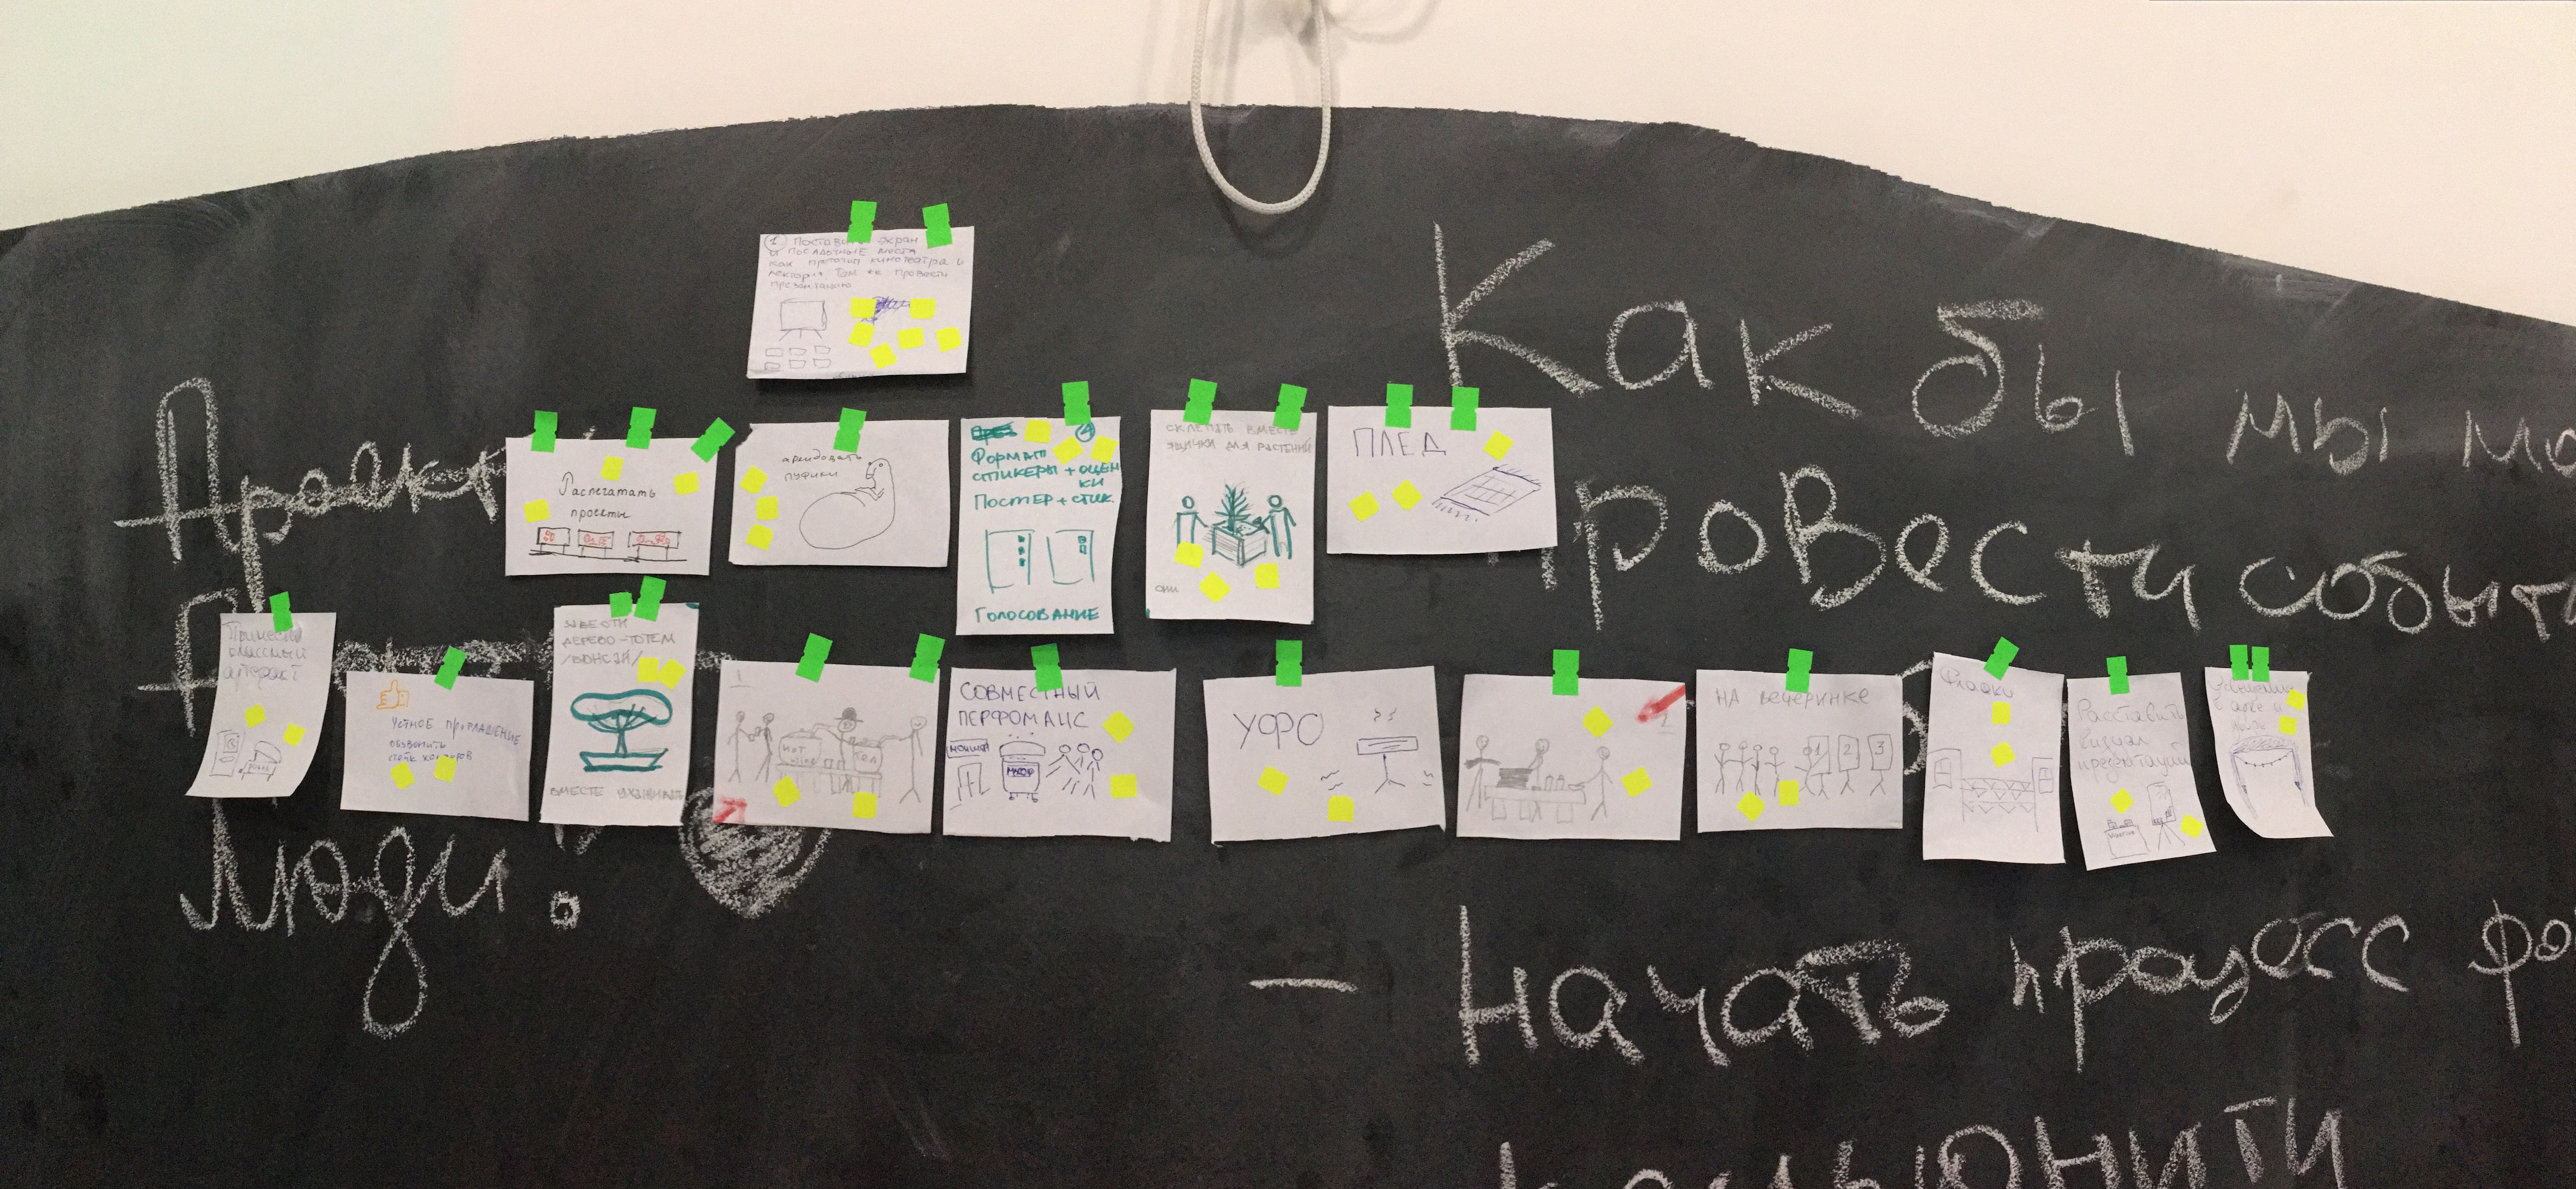 Как бы мы
провести событ
Люди:
— Начать процесс фо
комьюнити
1 Поставить экран
и посадочные места
как прототип кинотеатра и
лектория Там же провести
презентацию
Распечатать
проекты
арендовать
пуфики
4
Формат
стикеры + оцен
ки
Постер + стик.
Голосование
склепать вместе
ящички для растений
они
ПЛЕД
Принести
классный
артефакт
устное приглашение
обзвонить
завести
дерево-тотем
/бонсай/
вместе ухаживать
1
HOT
wine
Tea
СОВМЕСТНЫЙ
ПЕРФОМАНС
УФО
1
НА вечеринке
1 2 3
Флажки
Расставить
визуал
презентации